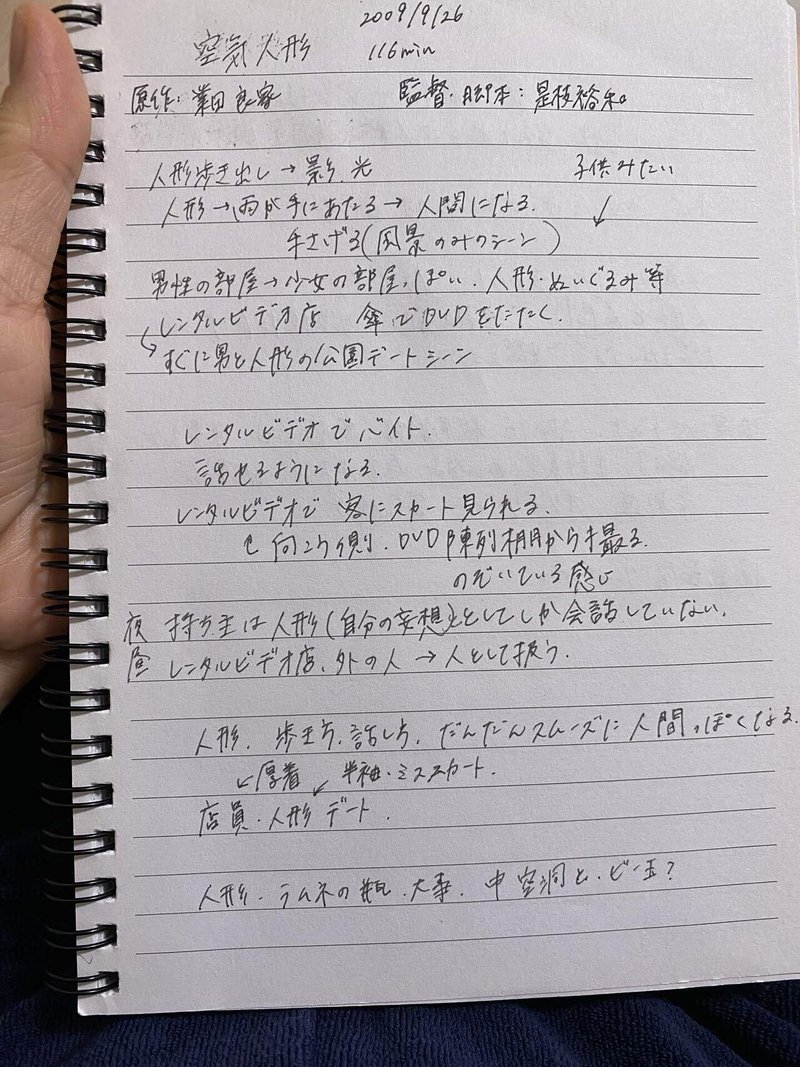 2009/9/26
空気人形 116min
原作:業田良家 監督・脚本:是枝裕和。
人形歩き出し→影 光 子供みたい
人形→雨が手にあたる→人間になる. ↙
手さげる(風景のみのシーン)
男性の部屋→少女の部屋っぽい.人形・ぬいぐるみ等
レンタルビデオ店 傘でDVDをたたく.
↪すぐに男と人形の公園デートシーン
レンタルビデオでバイト.
話せるようになる.
レンタルビデオで 客にスカート見られる.
向こう側.DVD陳列棚から撮る.
のぞいている感じ
夜 持ち主は人形(自分の妄想)としてしか会話していない.
昼 レンタルビデオ店、外の人→人として扱う.
人形.歩き方、話し方.だんだんスムーズに人間っぽくなる.
↙厚着 ↙半袖・ミススカート.
店員・人形デート.
人形.ラムネの瓶.大事.中空洞と.ビー玉?